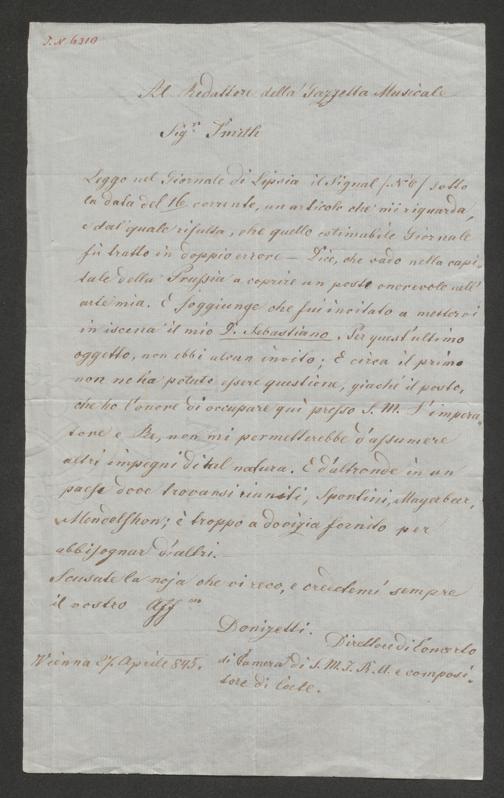 J.N 6310
Al Redattore della Gazzetta Musicale
Sigr. Smith
Leggo nel Giornale di Lipsia il Signal (No 6) sotto
la data del 16 corrente, un articolo che mi riguarda,
e dal quale risulta, che quello estimabile Giornale
fù tratto in doppio errore — Dice, che vado nella capi-
tale della Prussia a coprire un posto onorevole nell'
arte mia. E soggiunge che fui invitato a mettervi
in iscena il mio D. Sebastiano. Per quest'ultimo
oggetto, non ebbi alcun invito; E circa il primo
non ne ha potuto essere questione, giacchè il posto,
che ho l'onore di occupare quì presso S. M. l'impera-
tore e Re, non mi permetterebbe d'assumere
altri impegni di tal natura. E d'altronde in un
paese dove trovansi riuniti, Spontini, Mayerbeer,
Mendelshon; è troppo a dovizia fornito per
abbisognar d'altri.
Scusate la noja che vi reco, e credetemi sempre
il vostro Affmo
Donizetti. Direttore di Concerto
Vienna 27 Aprile 845.
di Camera di S. M. I. R. A. e composi-
tore di Corte.